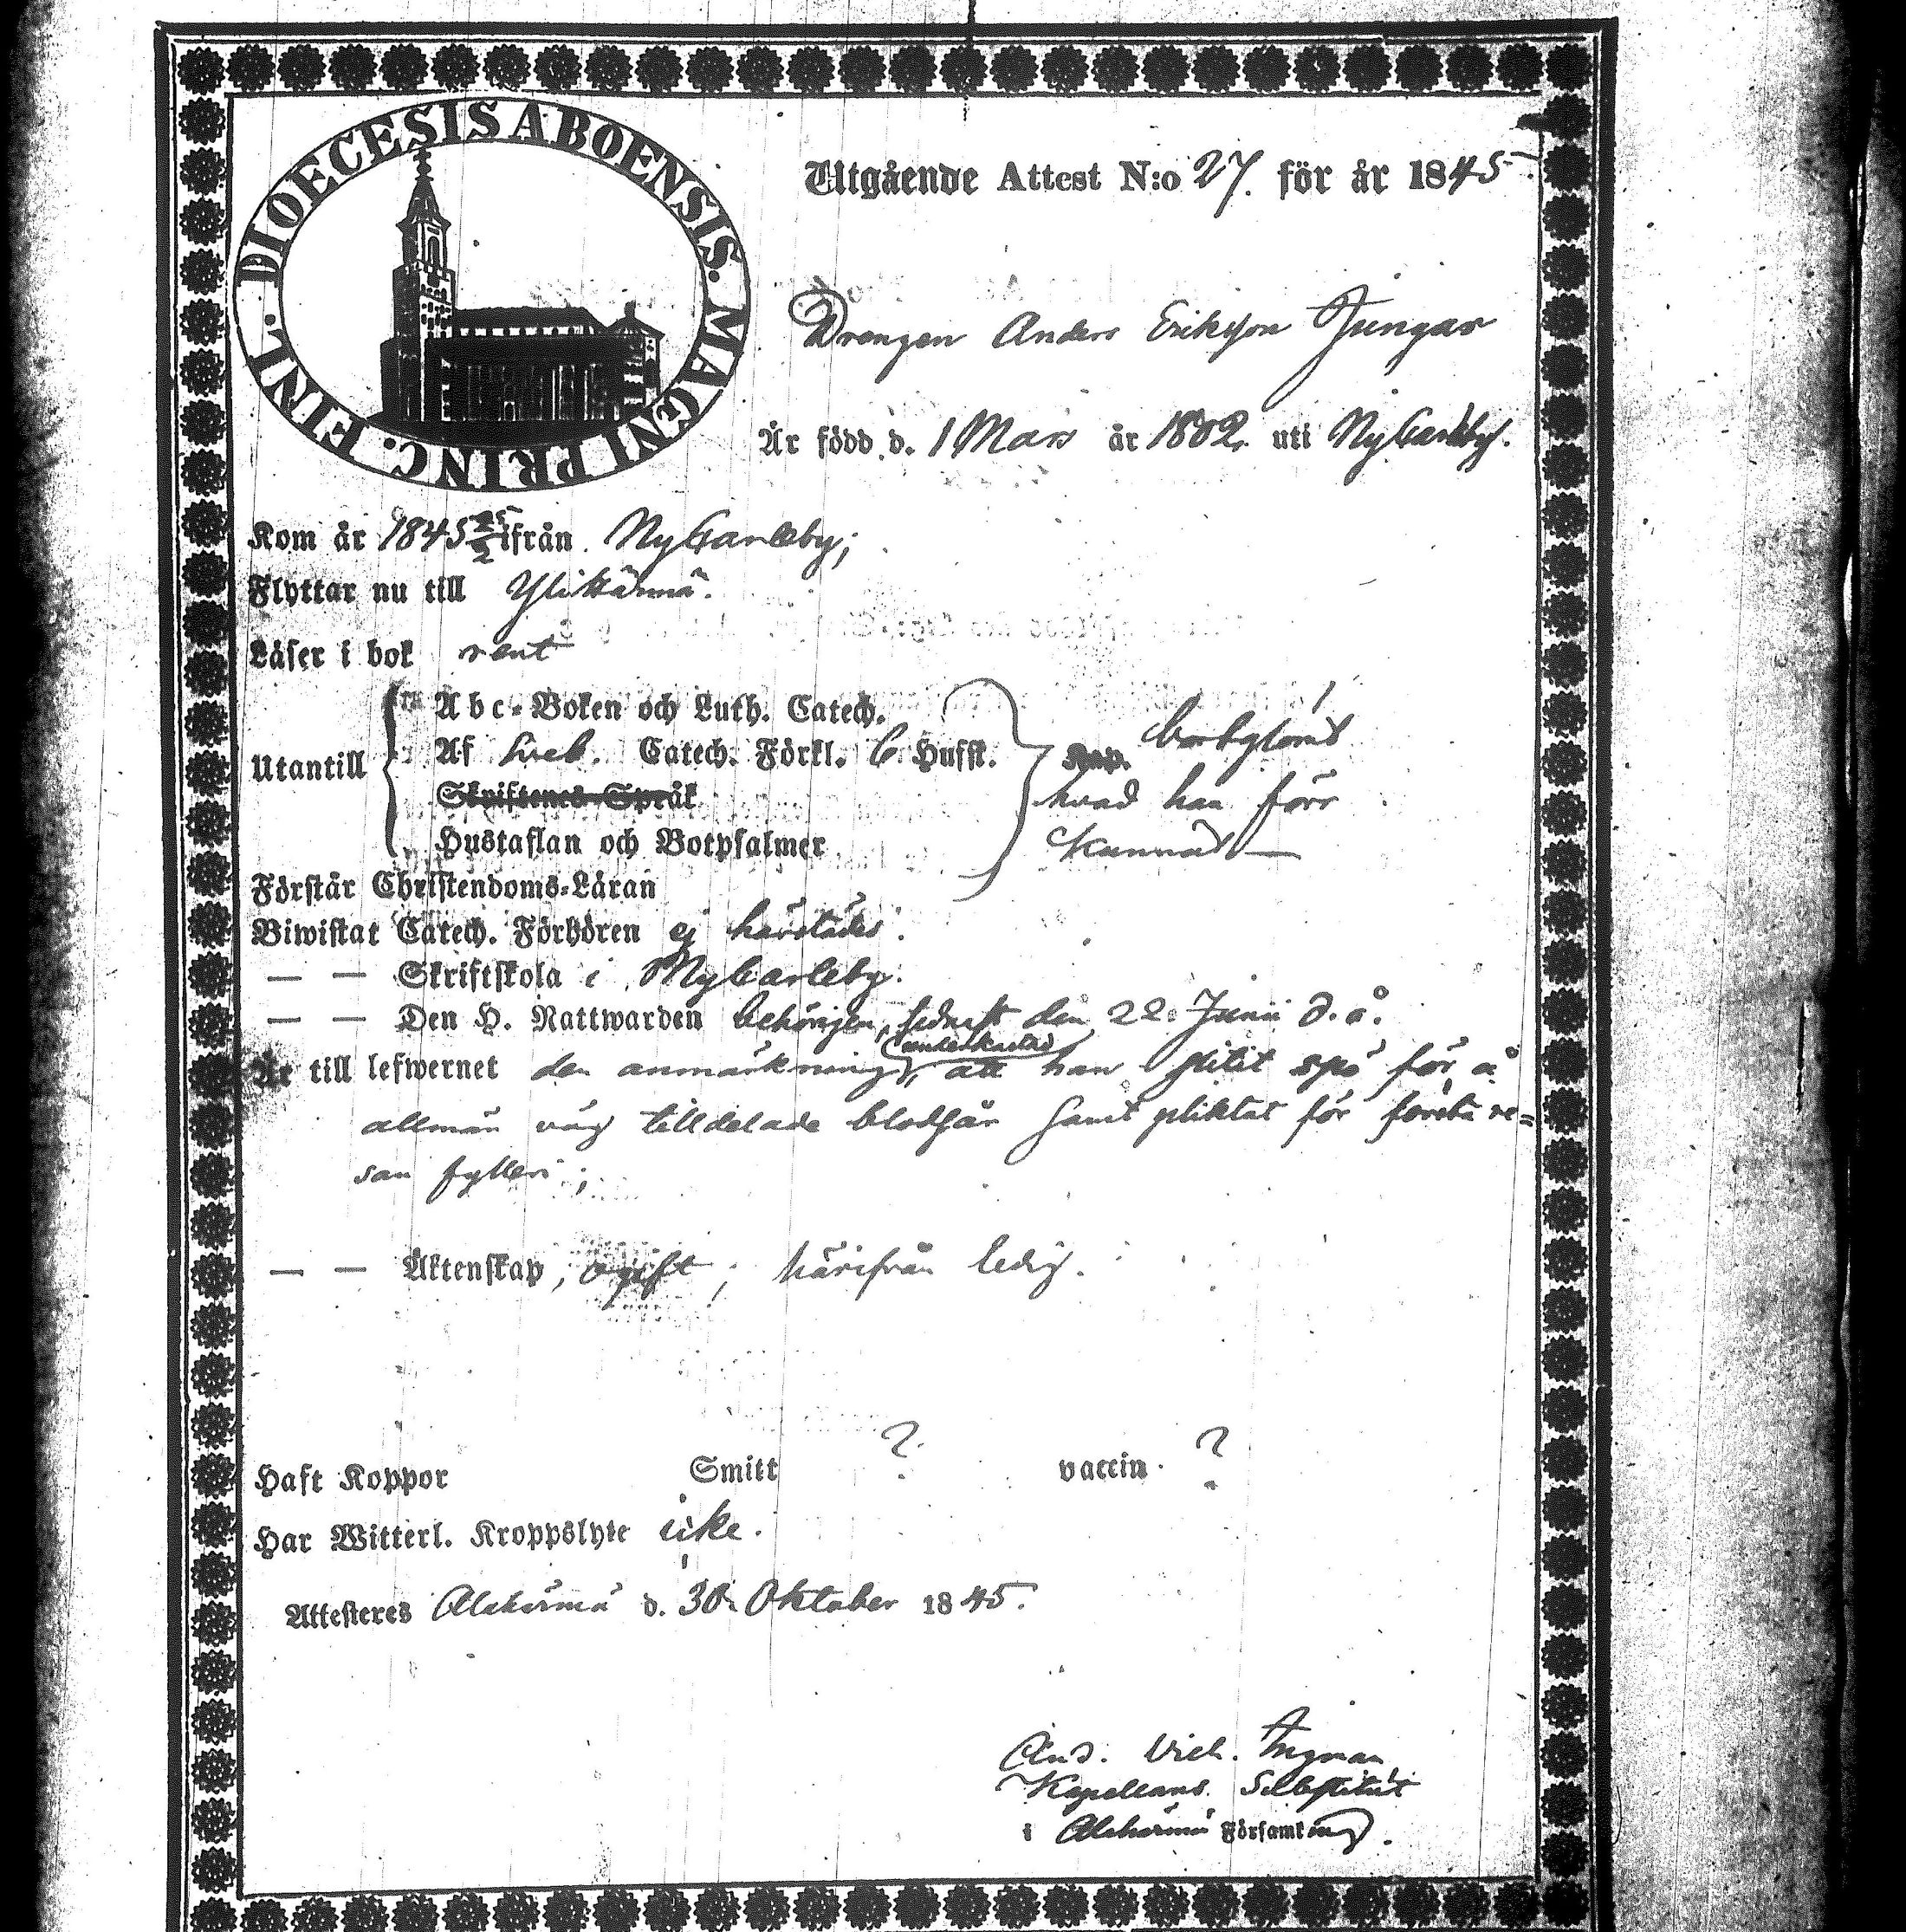 DIOECESIS ABOENSIS. MAGNI PRINC. FINL.
Utgående Attest N:o 27. för år 1845
Drengen Anders Eriksson Jungar
Är född d. 1 Mars år 1802. uti NyCarleby.
Kom år 1845 25/2 ifrån NyCarleby;
Flyttar nu till Ylikärmä.
Läser i bok rent
Utantill
Abc-Boken och Luth. Catech.
Af Sveb. Catech. Förkl. 6. Hufst.
Skriftenes Språk
Hustaflan och Botpsalmer
bortglömt
hvad han förr
kunnat
Förstår Christendoms-Läran
Biwistat Catech. Förhören ej härstädes.
— — Skriftskola i NyCarleby.
— — Den H. Nattwarden behörigen, sednast den 22 Junii d. å.
Är till lefwernet den anmärkning underkastad, att han slitit spö för å
allmän väg tilldelade blodsår samt pliktat för första re=
san fylleri;
— — Äktenskap, ogift, härifrån ledig.
Haft Koppor Smitt ? vaccin ?
Har Witterl. Kroppslyte icke.
Attesteres Alahärmä d. 30 Oktober 1845.
And. Vilh. Ingman
Kapellans Substitut
i Alahärmä Församling.